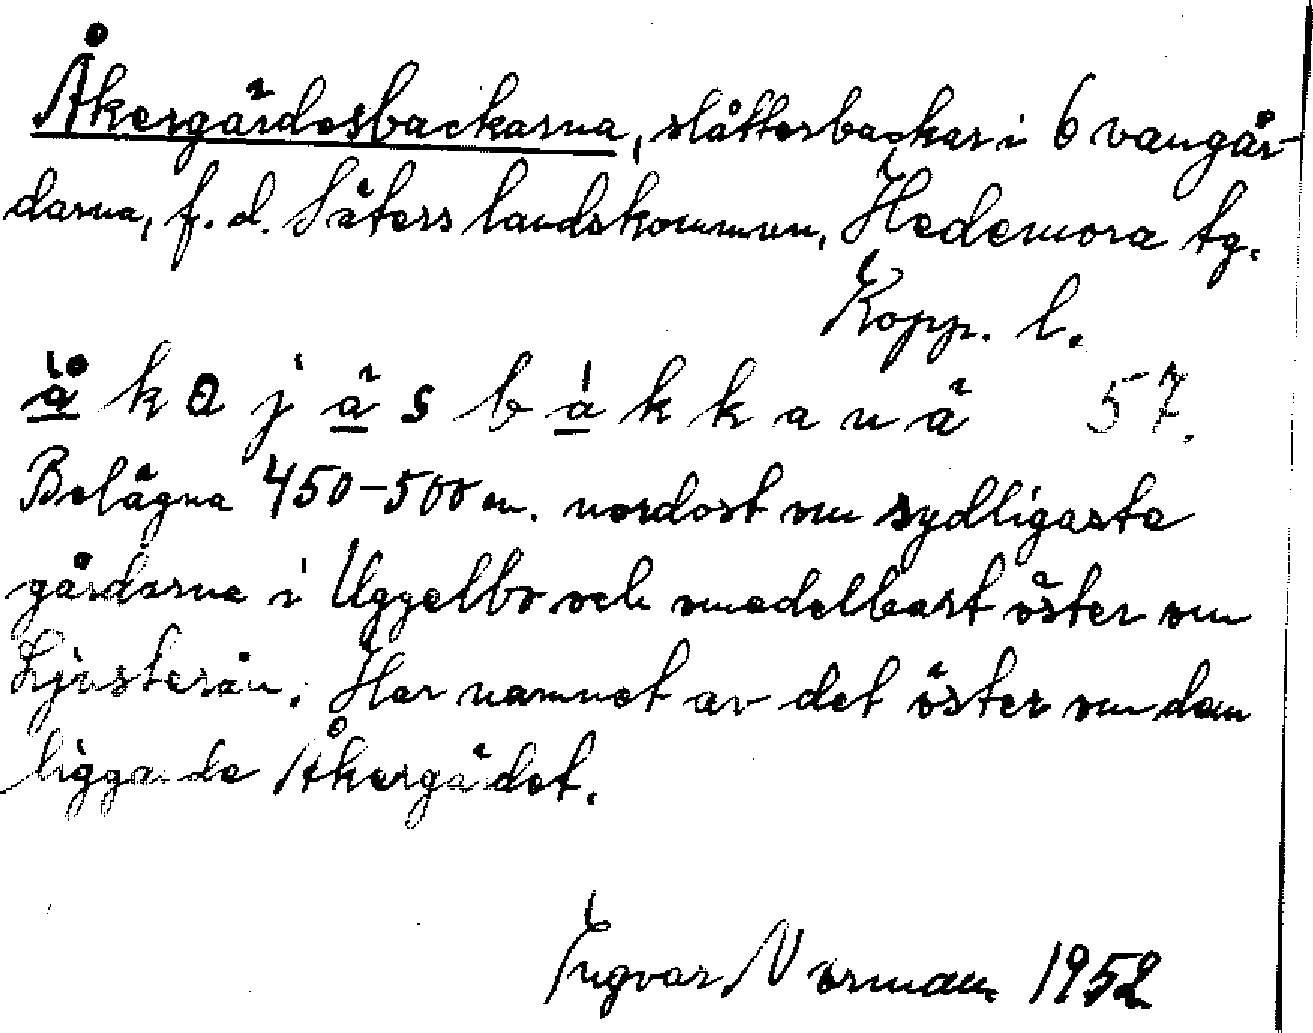 Åkergärdesbackarna, slåtterbackar i 6 vangår-
darna, f. d. Säters landskommun, Hedemora tg.
Kopp. l.
å k ə j ä s b a k k a n ä 57.
Belägna 450-500 m. nordost om sydligaste
gårdarna i Uggelbo och omedelbart öster om
Ljusterån. Har namnet av det öster om dem
liggande Åkergädet.
Ingvar Norman 1952